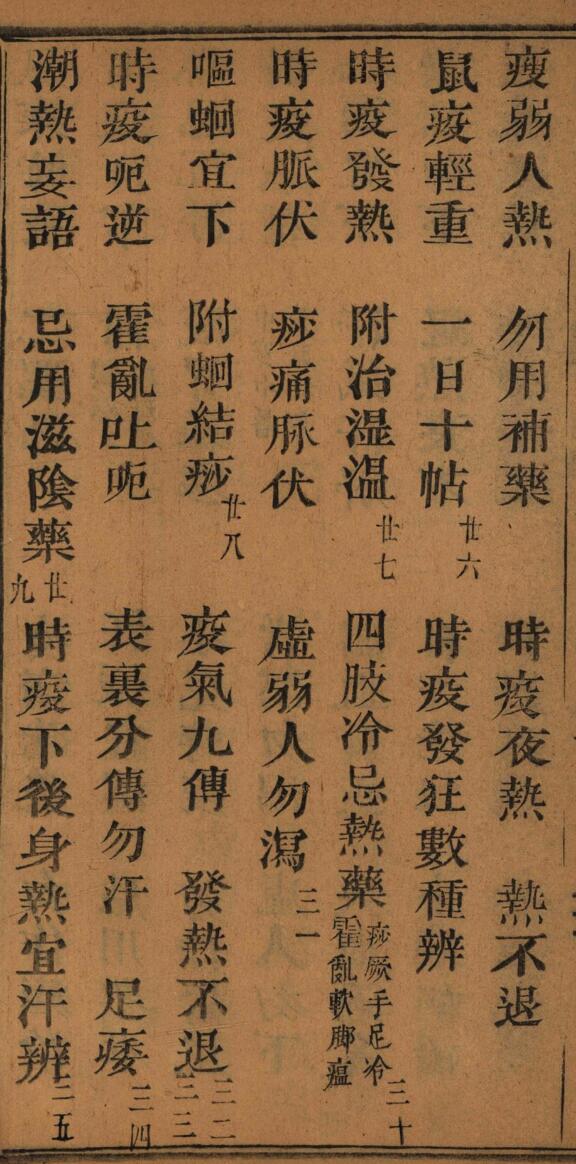 瘦弱人熱　勿用補藥　時疫夜熱　熱不退
鼠疫輕重　一日十帖廿六　時疫發狂數種辨
時疫發熱　附治湿温廿七　四肢冷忌熱藥痧厥手足冷霍亂軟脚瘟三十
時疫脈伏　痧痛脉伏　虛弱人勿瀉三一
嘔蛔宜下　附蛔結痧廿八　疫氣九傳　發熱不退三二三三
時疫呃逆　霍亂吐呃　表裏分傳勿汗　足痿三四
潮熱妄語　忌用滋陰藥廿九　時疫下後身熱宜汗辨三五